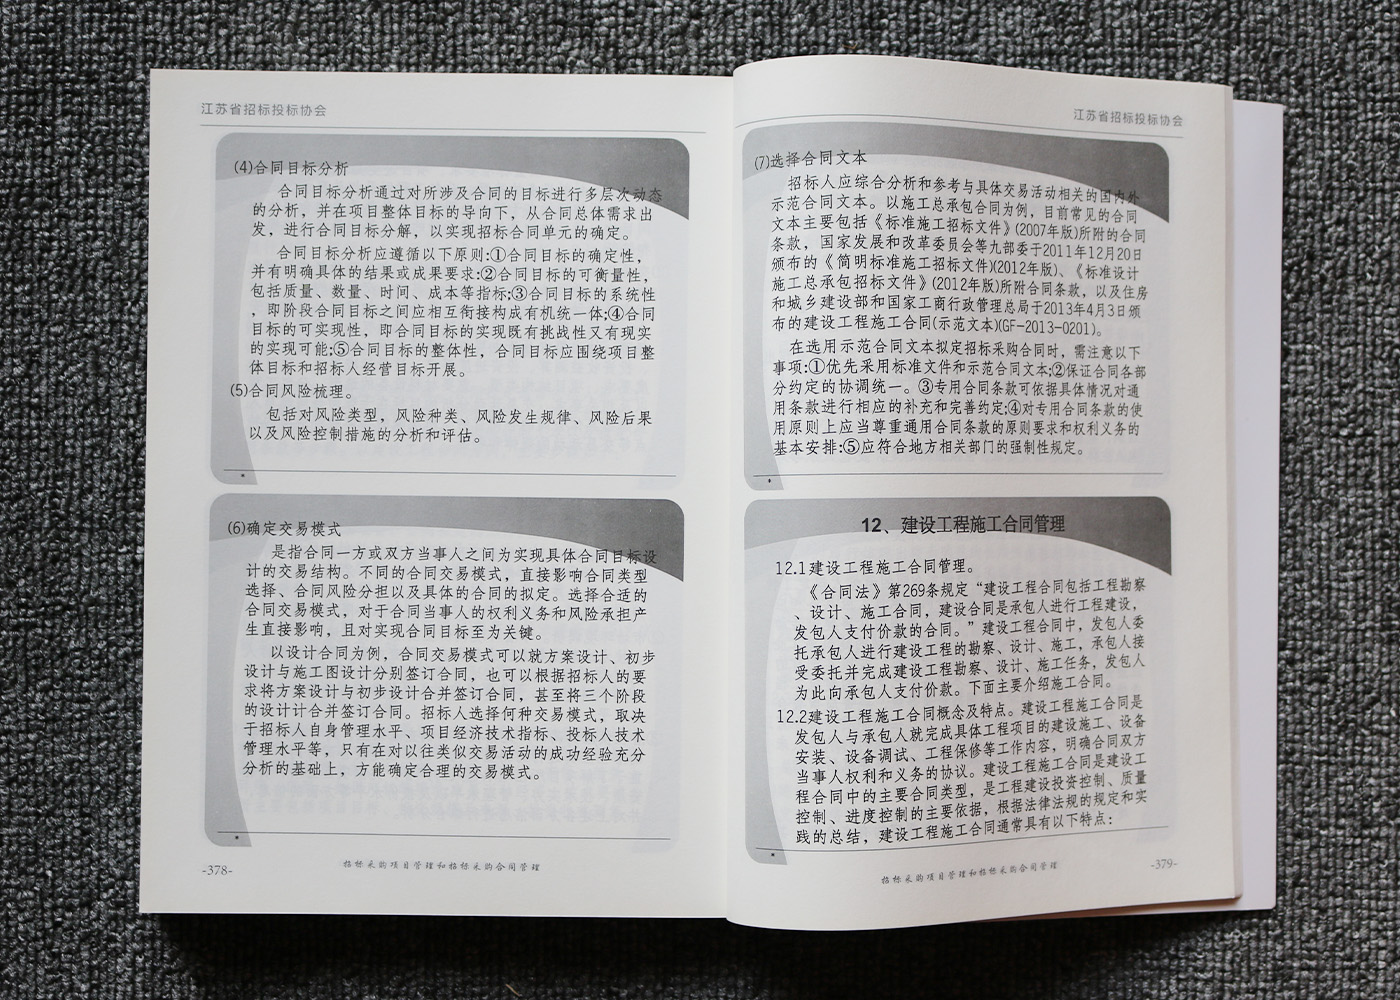 江苏省招标投标协会
(4)合同目标分析
合同目标分析通过对所涉及合同的目标进行多层次动态
的分析，并在项目整体目标的导向下，从合同总体需求出
发，进行合同目标分解，以实现招标合同单元的确定。
合同目标分析应遵循以下原则:①合同目标的确定性，
并有明确具体的结果或成果要求:②合同目标的可衡量性，
包括质量、数量、时间、成本等指标;③合同目标的系统性
，即阶段合同目标之间应相互衔接构成有机统一体;④合同
目标的可实现性，即合同目标的实现既有挑战性又有现实
的实现可能;⑤合同目标的整体性，合同目标应围绕项目整
体目标和招标人经营目标开展。
(5)合同风险梳理。
包括对风险类型，风险种类、风险发生规律、风险后果
以及风险控制措施的分析和评估。
(6)确定交易模式
是指合同一方或双方当事人之间为实现具体合同目标设
计的交易结构。不同的合同交易模式，直接影响合同类型
选择、合同风险分担以及具体的合同的拟定。选择合适的
合同交易模式，对于合同当事人的权利义务和风险承担产
生直接影响，且对实现合同目标至为关键。
以设计合同为例，合同交易模式可以就方案设计、初步
设计与施工图设计分别签订合同，也可以根据招标人的要
求将方案设计与初步设计合并签订合同，甚至将三个阶段
的设计计合并签订合同。招标人选择何种交易模式，取决
于招标人自身管理水平、项目经济技术指标、投标人技术
管理水平等，只有在对以往类似交易活动的成功经验充分
分析的基础上，方能确定合理的交易模式。
-378-
招标采购项目管理和招标采购合同管理
江苏省招标投标协会
(7)选择合同文本
招标人应综合分析和参考与具体交易活动相关的国内外
示范合同文本。以施工总承包合同为例，目前常见的合同
文本主要包括《标准施工招标文件》(2007年版)所附的合同
条款，国家发展和改革委员会等九部委于2011年12月20日
颁布的《简明标准施工招标文件)(2012年版)、《标准设计
施工总承包招标文件》(2012年版)所附合同条款，以及住房
和城乡建设部和国家工商行政管理总局于2013年4月3日颁
布的建设工程施工合同(示范文本)(GF-2013-0201)。
在选用示范合同文本拟定招标采购合同时，需注意以下
事项:①优先采用标准文件和示范合同文本;②保证合同各部
分约定的协调统一。③专用合同条款可依据具体情况对通
用条款进行相应的补充和完善约定;④对专用合同条款的使
用原则上应当尊重通用合同条款的原则要求和权利义务的
基本安排:⑤应符合地方相关部门的强制性规定。
12、建设工程施工合同管理
12.1建设工程施工合同管理。
《合同法》第269条规定“建设工程合同包括工程勘察
、设计、施工合同，建设合同是承包人进行工程建设，
发包人支付价款的合同。”建设工程合同中，发包人委
托承包人进行建设工程的勘察、设计、施工，承包人接
受委托并完成建设工程勘察、设计、施工任务，发包人
为此向承包人支付价款。下面主要介绍施工合同。
12.2建设工程施工合同概念及特点。建设工程施工合同是
发包人与承包人就完成具体工程项目的建设施工、设备
安装、设备调试、工程保修等工作内容，明确合同双方
当事人权利和义务的协议。建设工程施工合同是建设工
程合同中的主要合同类型，是工程建设投资控制、质量
控制、进度控制的主要依据，根据法律法规的规定和实
践的总结，建设工程施工合同通常具有以下特点：
招标采购项目管理和招标采购合同管理
-379-